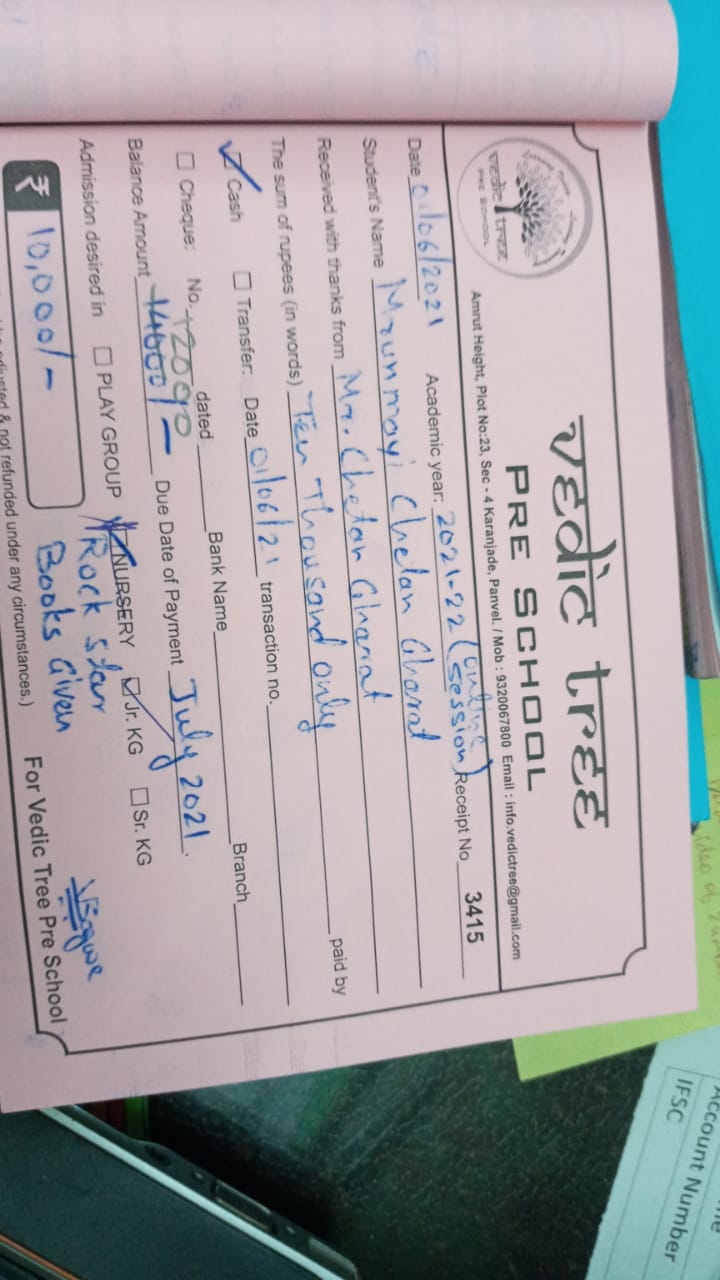 vedic tree
PRE SCHOOL
vedic tree
PRE SCHOOL
Amrut Height, Plot No:23, Sec - 4 Karanjade, Panvel. / Mob : 9320067800 Email : info.vedictree@gmail.com
Date 01/06/2021 Academic year: 2021-22 (online session) Receipt No 3415
Student's Name Mrunmayi Chetan Gharat
Received with thanks from Mr. Chetan Gharat paid by
The sum of rupees (in words) Ten Thousand only
Cash Transfer: Date 01/06/21 transaction no.
Cheque: No. dated Bank Name Branch
12000
Balance Amount 14000/- Due Date of Payment July 2021.
Admission desired in PLAY GROUP NURSERY Jr. KG Sr. KG
Rock Star
₹ 10,000/- Books Given
For Vedic Tree Pre School
adjusted & not refunded under any circumstances.)
Account Number
IFSC